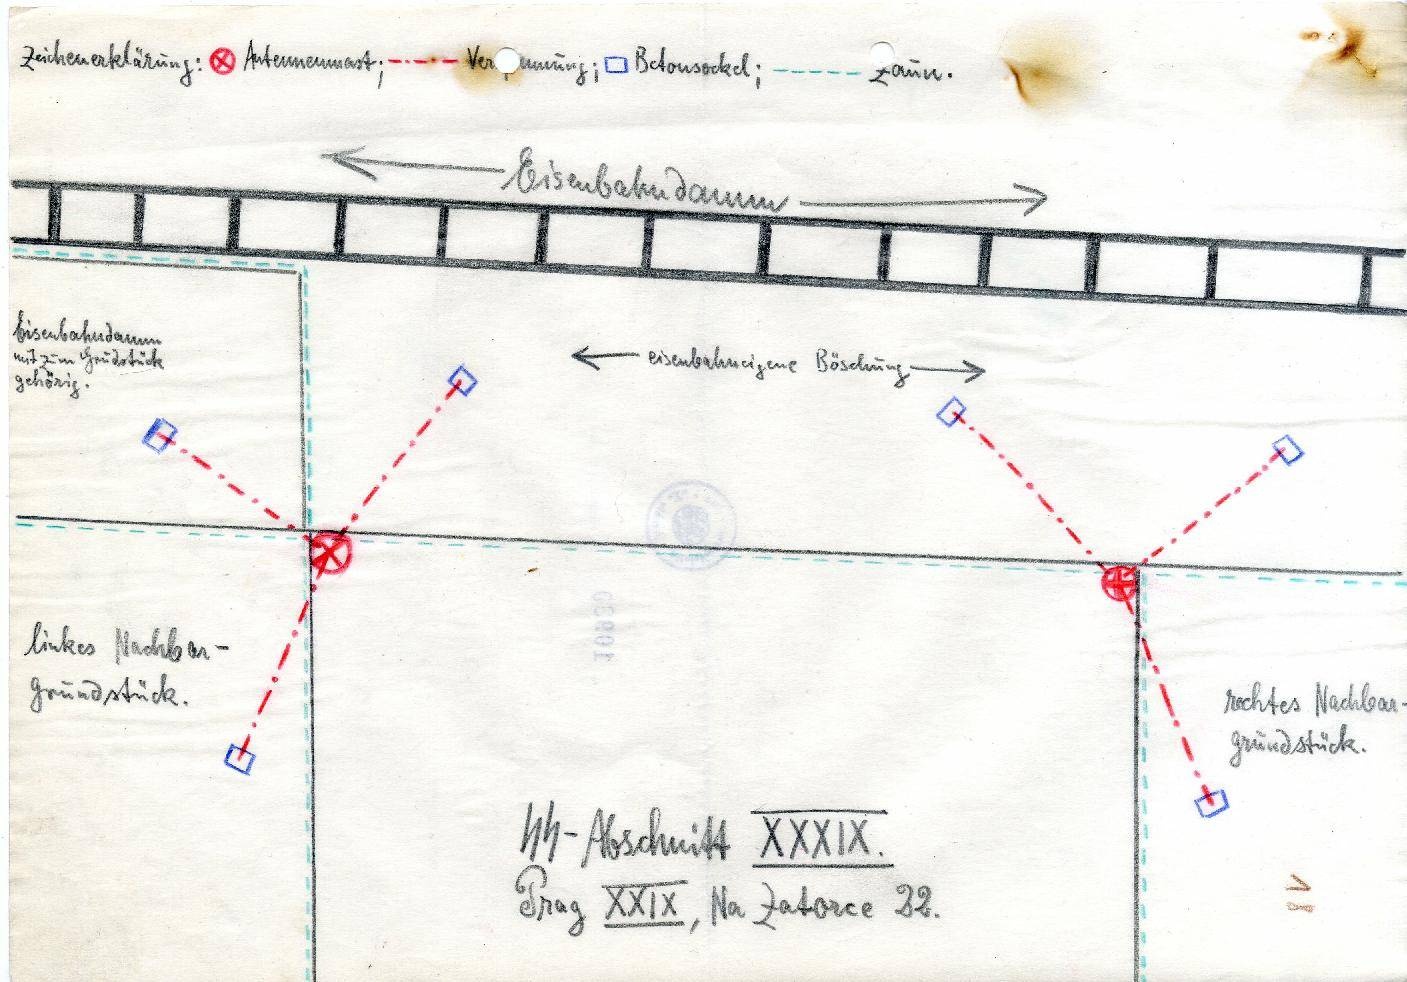 Zeichenerklärung: Antennenmast; Betonsockel; Zaun.
Eisenbahndamm
Eisenbahndamm
mit zum Grundstück
gehörig.
eisenbahneigene Böschung
linkes Nachbar-
grundstück.
rechtes Nachbar-
grundstück.
SS-Abschnitt XXXIX.
Prag XXIX, Na Zatorce 22.